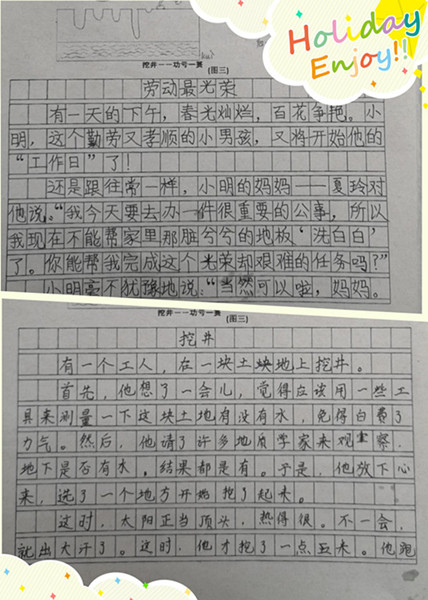 Holiday
Enjoy!!
挖井——功亏一篑
(图三)
劳动最光荣
有一天的下午，春光灿烂，百花争艳。小
明，这个勤劳又孝顺的小男孩，又将开始他的
“工作日”了！
还是跟往常一样，小明的妈妈——夏玲对
他说：“我今天要去办一件很重要的公事，所以
我现在不能帮家里那脏兮兮的地板‘洗白白’
了。你能帮我完成这个光荣却艰难的任务吗？”
小明毫不犹豫地说：“当然可以啦，妈妈。
挖井——功亏一篑
(图三)
挖井
有一个工人，在一块土块地上挖井。
首先，他想了一会儿，觉得应该用一些工
具来测量一下这块土地有没有水，免得白费了
力气。然后，他请了许多地质学家来观察，
地下是否有水。结果都是有。于是，他放下心
来，选了一个地方开始挖了起来。
这时，太阳正当顶头，热得很。不一会，
就出大汗了。这时，他才挖了一点五米。他跑